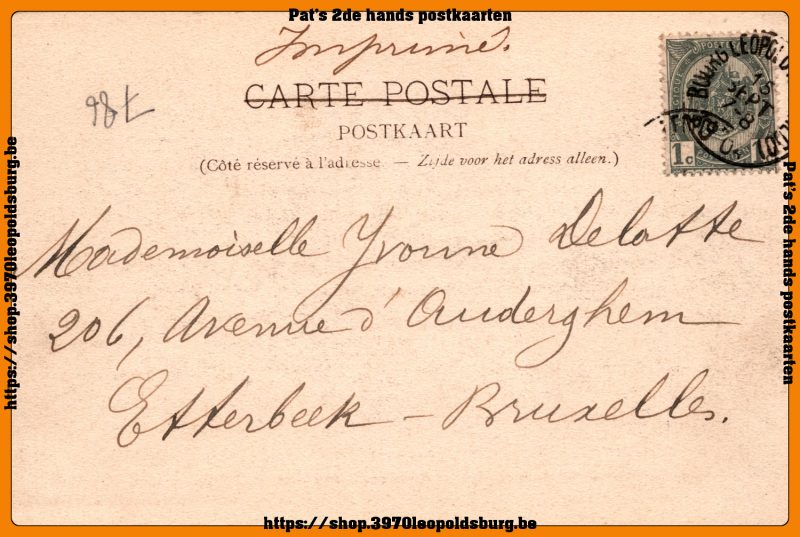 Pat's 2de hands postkaarten
Imprimé.
CARTE POSTALE
POSTKAART
(Côté réservé à l'adresse. — Zijde voor het adress alleen.)
Mademoiselle Yvonne Delatte
206, Avenue d'Auderghem
Etterbeek – Bruxelles.
BOURG LEOPOLD
13
SEPT
7-8
1c
https://shop.3970leopoldsburg.be
Pat's 2de hands postkaarten
https://shop.3970leopoldsburg.be